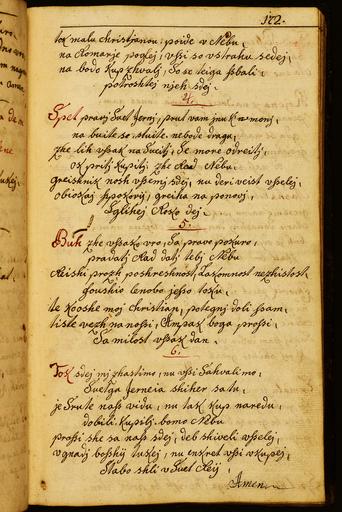 172.
tok malu christjanou, poide v Nebu,
na Romarje poglej, vssi so vstrahu sedej,
na bodo kup zhvalj, So se teiga ssbali
potroshtej njeh sdej.
4.
Spet pravi Suet Jernj, prut vam jmu k nemonj,
na buite so, sluite nebode draga,
zhe lih vssak na Sueitj, Se more odreitj,
ok pritj kupitj zhe Rad Nebu
greishnik nosh vssemj sdej, nu deri veist vsselej,
obioskaj sspokorij, greiha na ponovj,
Sglihej Rosko dej.
5.
Buh zhe vssako vro, Sa pravo pokuro,
pradatj Rad datj tebj Nebu
Reishi prozh poshreshnost, Lakomnost nezhistost
te kooshe moj Christian, potegnj doli ssam,
tiste vezh na nossi, Ampak boga prossi,
Sa milost vssak dan.
6.
Tok sdej mj zhastimo, nu vssi Sahvalimo,
Suetga Jerneia shiher satu,
je Srute nass vidu, nu tak kup naredu,
dobili kupitj bomo Nebu
prossi she sa nass sdej, deb shiveli vsselej,
vgnadj boshij tukej, nu enkret vssi vkupej,
Slabo shli v Suet Reij.
Amen